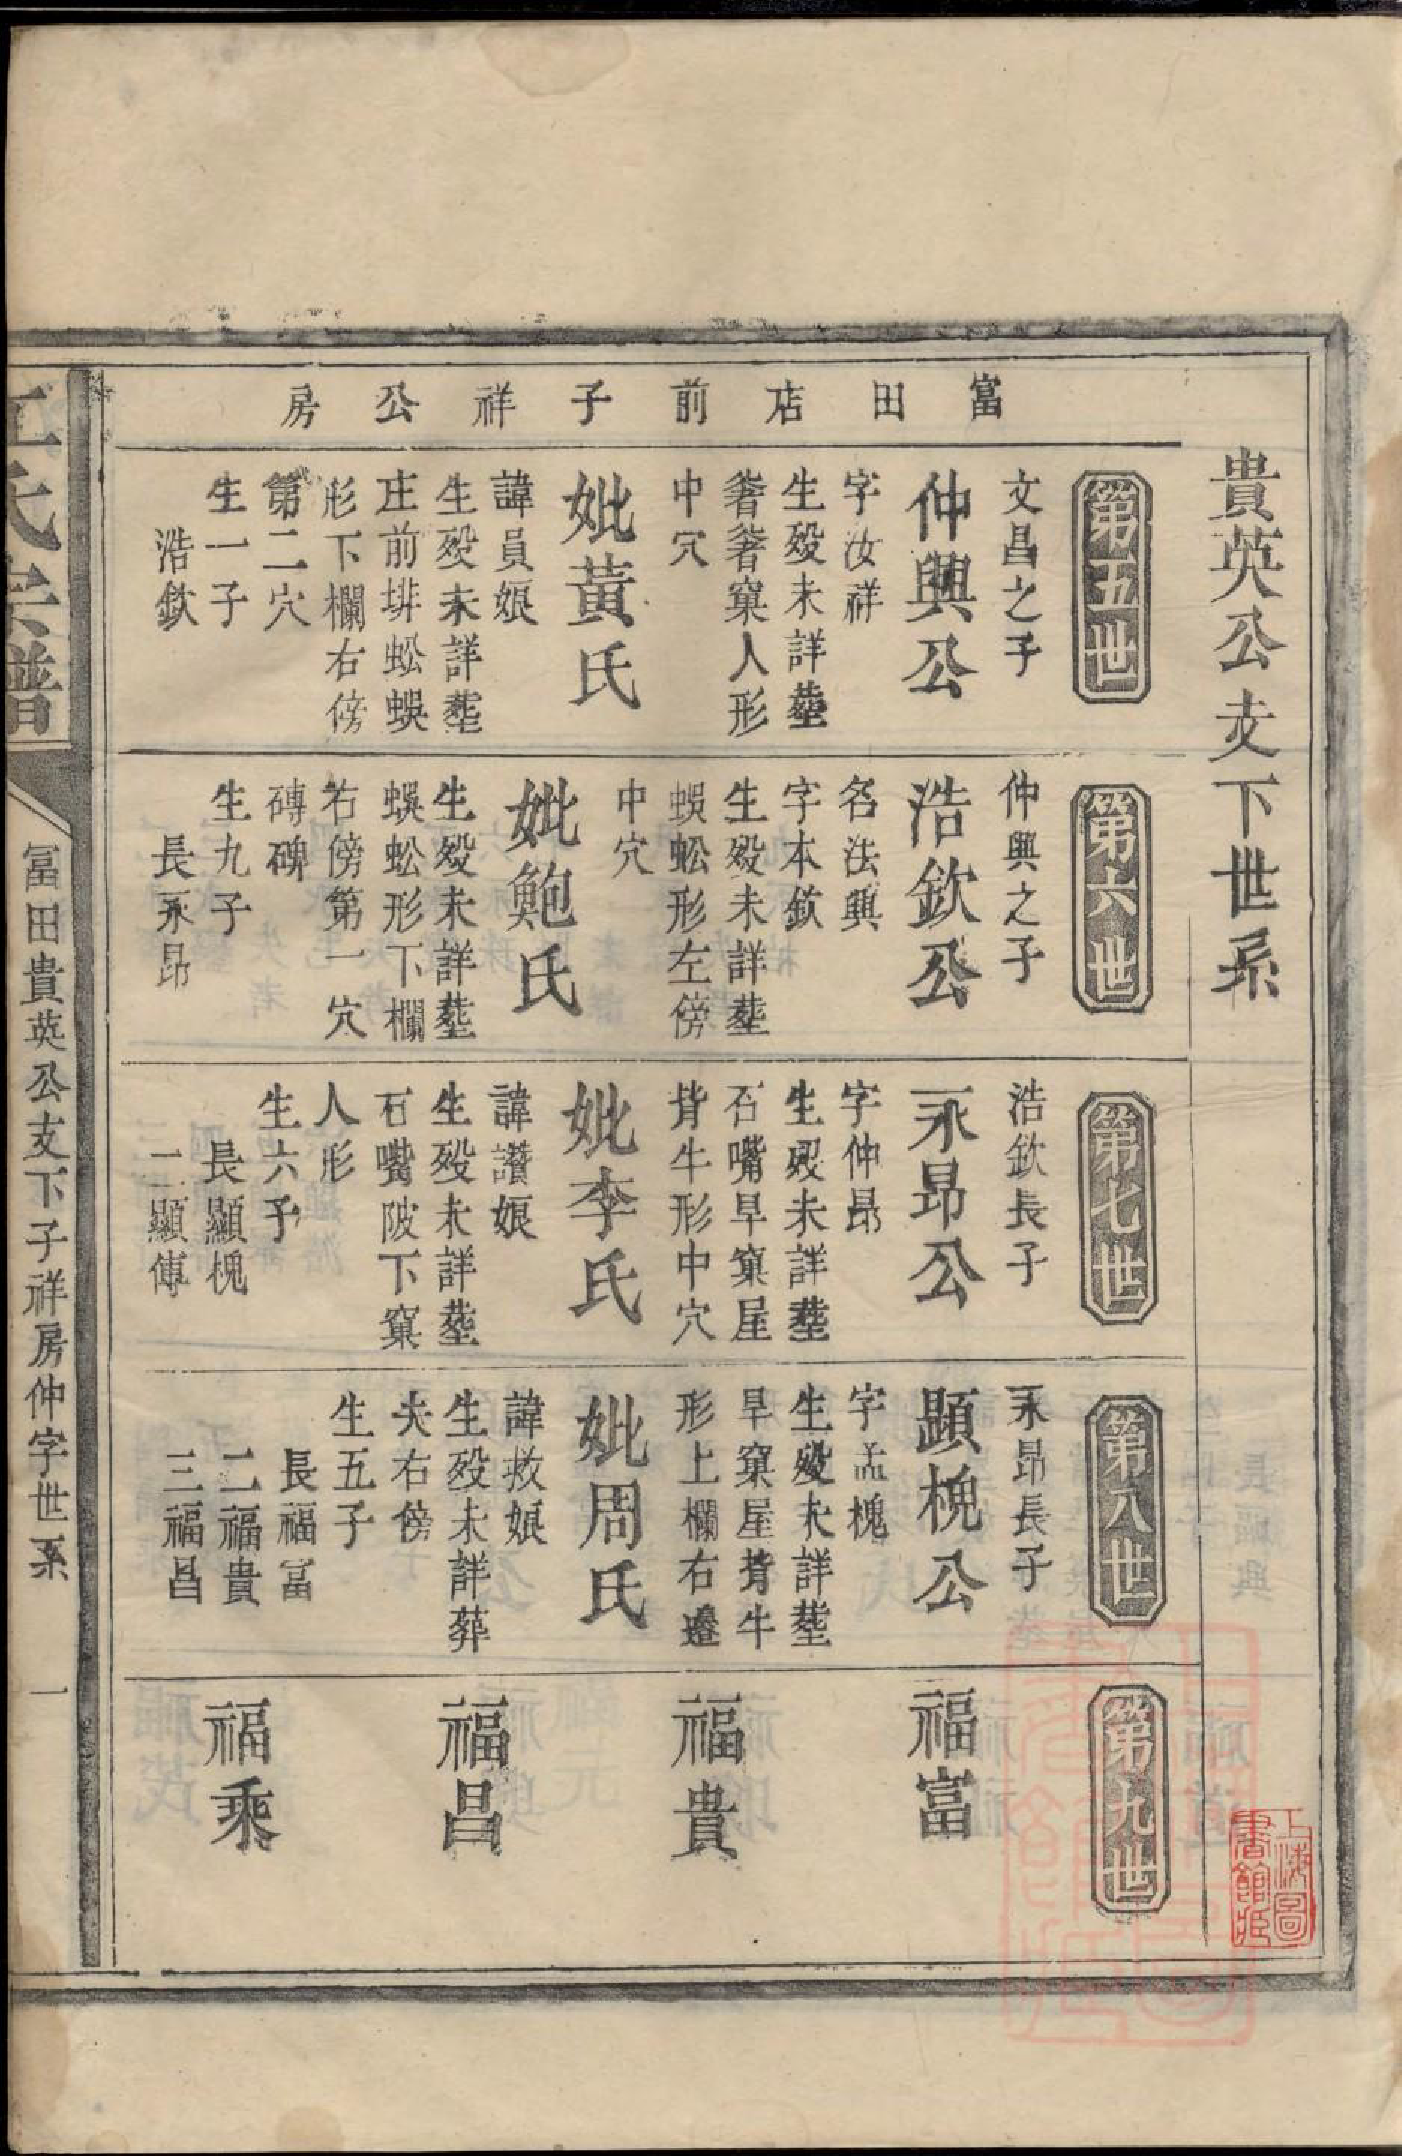 貴英公支下世系
富田店前子祥公房
第五世
文昌之子
仲興公
字汝祥
生殁未詳塟
窠人形
中穴
妣黃氏
諱員娘
生殁未詳塟
庄前排蚣蜈
形下欄右傍
第二穴
生一子
浩欽
第六世
仲興之子
浩欽公
名法興
字本欽
生殁未詳塟
蜈蚣形左傍
中穴
妣鮑氏
生殁未詳塟
蜈蚣形下欄
右傍第一穴
磚碑
生九子
長永昂
第七世
浩欽長子
永昂公
字仲昂
生殁未詳塟
石嘴旱窠屋
背牛形中穴
妣李氏
諱讚娘
生殁未詳塟
石嘴陂下窠
人形
生六子
長顯槐
二顯傳
第八世
永昂長子
顯槐公
字孟槐
生殁未詳塟
旱窠屋背牛
形上欄右邊
妣周氏
諱救娘
生殁未詳葬
夫右傍
生五子
長福富
二福貴
三福昌
第九世
福富
福貴
福昌
福乘
上海圖
書館藏
江氏宗譜
富田貴英公支下子祥房仲字世系
一